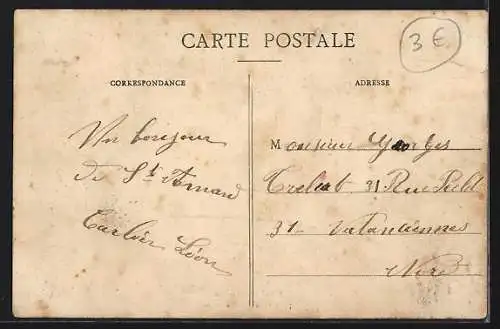 CARTE POSTALE
3 €
CORRESPONDANCE
ADRESSE
Un bonjour
de St Amand
Carlier Léon
Monsieur Georges
31 Rue
31 Valanciennes
Nord